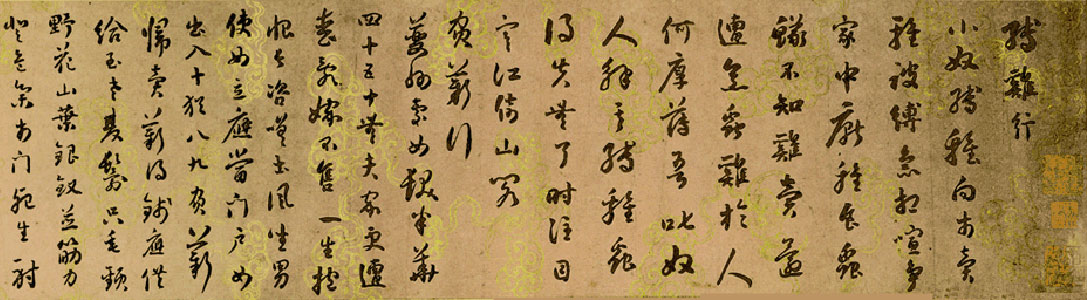 縛雞行
小奴縛雞向市賣
雞被縛急相喧爭
家中厭雞食蟲
蟻不知雞賣還
遭烹蟲雞於人
何厚薄吾叱奴
人解其縛雞蟲
得失無了時注目
寒江倚山閣
負薪行
夔州處女髮半華
四十五十無夫家更遭
喪亂嫁不售一生抱
恨長咨嗟土風坐男
使女立應當門戶女
出入十猶八九負薪
歸賣薪得錢應供
給至老雙鬟只垂頸
野花山葉銀釵並筋力
登危集市門死生射